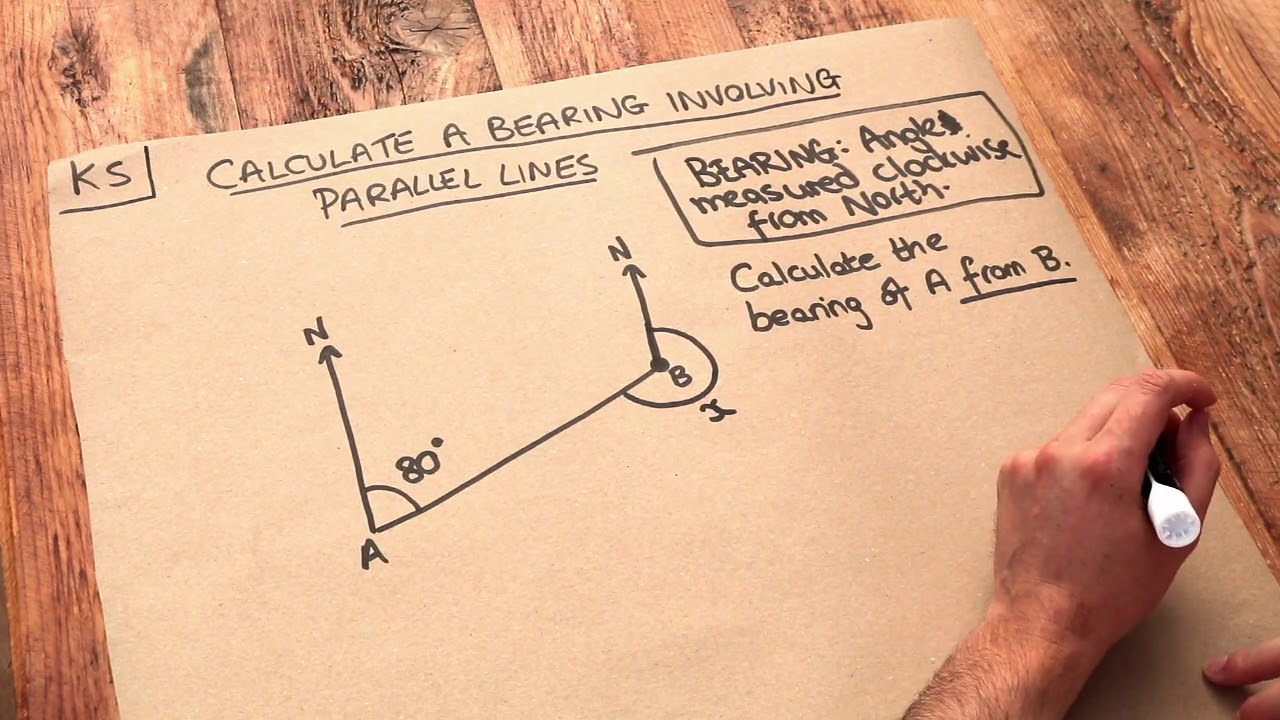 KS
CALCULATE A BEARING INVOLVING
PARALLEL LINES
BEARING: Angle
measured clockwise
from North.
Calculate the
bearing of A from B.
N
N
B
x
80°
A